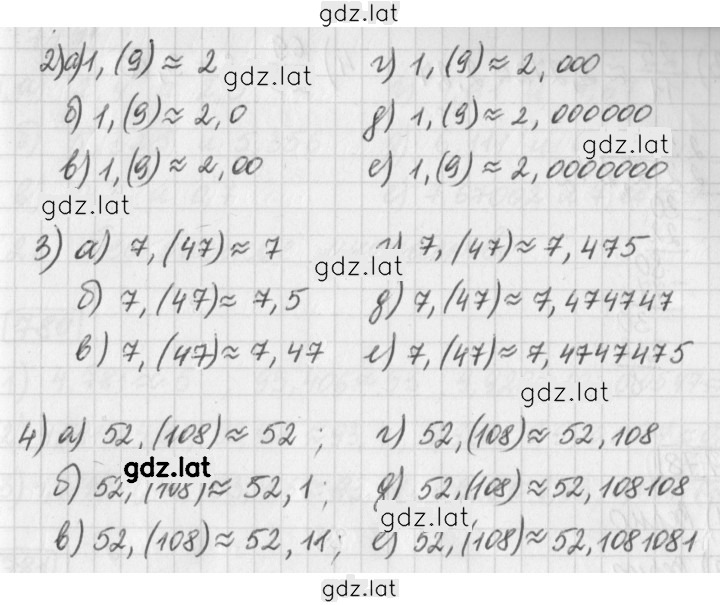 gdz.lat
2) а) 1,(9) ≈ 2 г) 1,(9) ≈ 2,000
gdz.lat
б) 1,(9) ≈ 2,0 д) 1,(9) ≈ 2,000000
gdz.lat
в) 1,(9) ≈ 2,00 е) 1,(9) ≈ 2,0000000
gdz.lat
3) а) 7,(47) ≈ 7 г) 7,(47) ≈ 7,475
gdz.lat
б) 7,(47) ≈ 7,5 д) 7,(47) ≈ 7,474747
в) 7,(47) ≈ 7,47 е) 7,(47) ≈ 7,4747475
gdz.lat
4) а) 52,(108) ≈ 52 ; г) 52,(108) ≈ 52,108
gdz.lat
б) 52,(108) ≈ 52,1 ; д) 52,(108) ≈ 52,108108
gdz.lat
в) 52,(108) ≈ 52,11 ; е) 52,(108) ≈ 52,1081081
gdz.lat